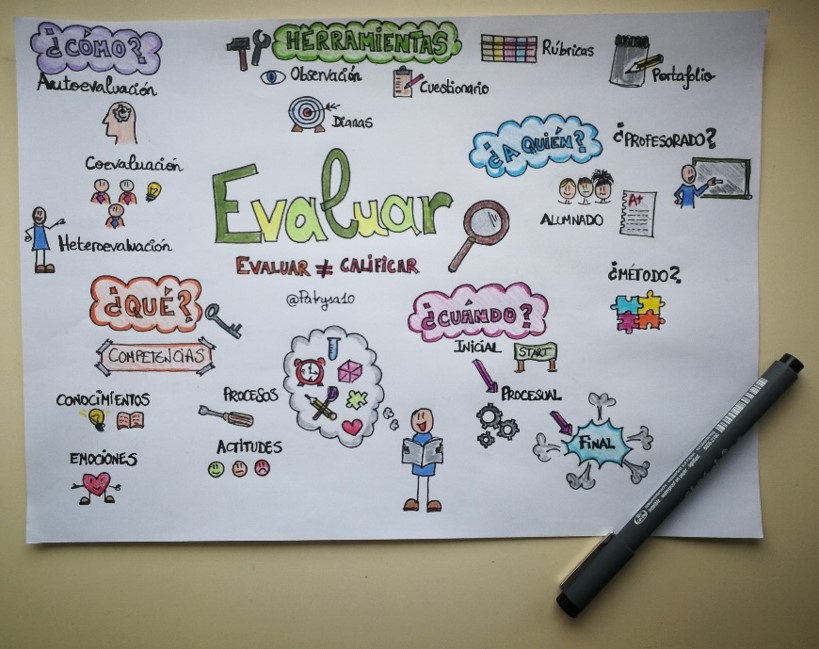 ¿CÓMO?
Autoevaluación
Coevaluación
Heteroevaluación
HERRAMIENTAS
Observación
Cuestionario
Rúbricas
Portafolio
Dianas
¿A QUIÉN?
¿PROFESORADO?
ALUMNADO
A+
Evaluar
EVALUAR ≠ CALIFICAR
@Pakysa10
¿MÉTODO?
¿QUÉ?
COMPETENCIAS
CONOCIMIENTOS
PROCESOS
EMOCIONES
ACTITUDES
¿CUÁNDO?
INICIAL
START
PROCESUAL
FINAL